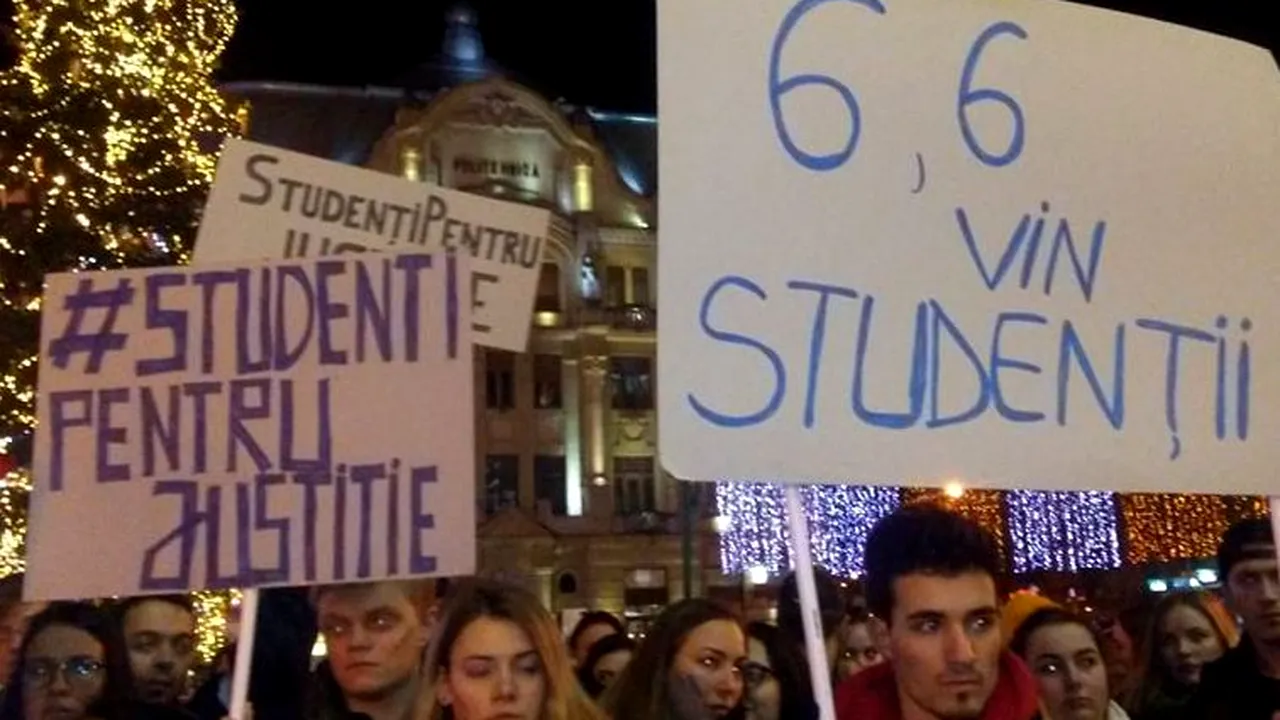 POLITEHNICA
STUDENȚIPENTRU
E
#STUDENTI
PENTRU
JUSTITIE
6,6
VIN
STUDENȚII